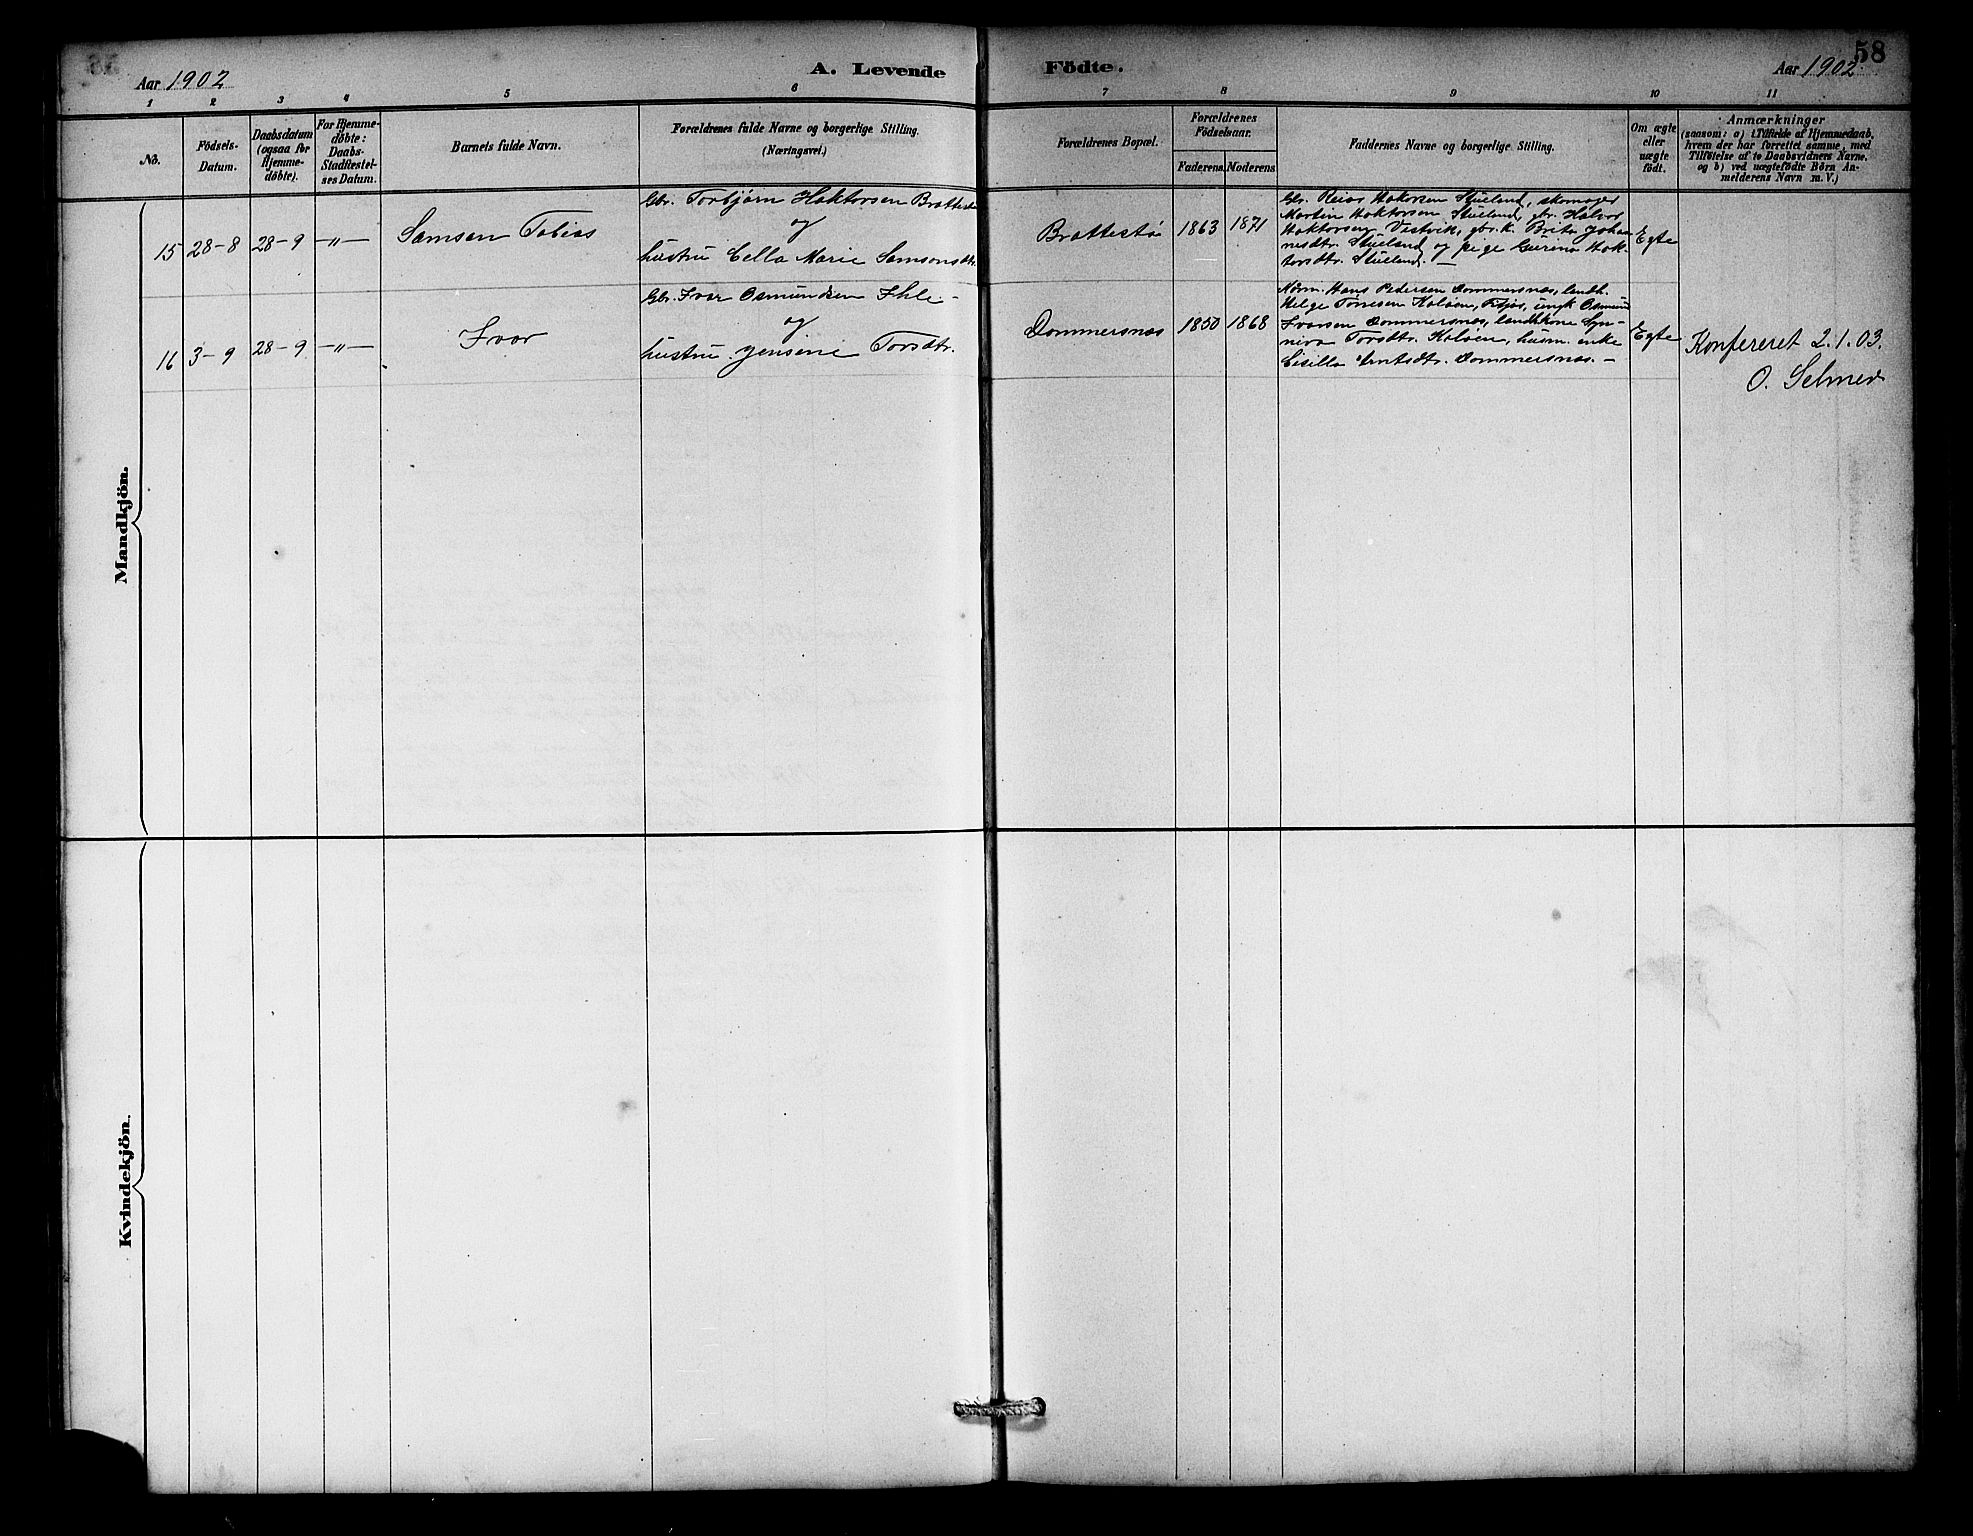 58
Aar 1902
A. Levende Födte.
Aar 1902
1 2 3 4 5 6 7 8 9 10 11
No.
Födsels-
Datum.
Daabsdatum
(ogsaa for
Hjemme-
döbte).
For Hjemme-
döbte:
Daabs-
Stadfæstel-
ses Datum.
Barnets fulde Navn.
Forældrenes fulde Navne og borgerlige Stilling.
(Næringsvei.)
Forældrenes Bopæl.
Forældrenes
Födselsaar.
Faderens. Moderens.
Faddernes Navne og borgerlige Stilling.
Om ægte
eller
uægte
födt.
Anmærkninger
(saasom: a) i Tilfælde af Hjemmedaab,
hvem der har forrettet samme, med
Tilföielse af to Daabsvidners Navne.
og b) ved uægtefödte Börn An-
melderens Navn m. V.)
Mandkjön.
15 28-8 28-9 -"- Samson Tobias
Gbr. Torbjörn Haktorsen Brattestö
og
hustru Cella Marie Samsonsdtr.
Brattestö 1863 1871
Gbr. Reias Haktorsen Stueland, skomager
Martin Haktorsen Stueland, gbr. Halvor
Haktorsen Vestvik, gbr.k. Brita Johan-
nesdtr. Stueland og pige Gurina Hak-
torsdtr. Stueland. —
Egte
16 3-9 28-9 -"- Ivar
Gbr. Ivar Osmundsen Ihle -
og
hustru Jensine Torsdtr.
Dommersnæs 1850 1868
Nörm. Hans Pedersen Dommersnæs, landh.
Helge Torresen Kolöen, Fitjar, ungk. Osmund
Ivarsen Dommersnæs, landhkone Syn-
neva Torsdtr. Kolöen, husm. enke
Cisilla Arntsdtr. Dommersnæs. -
Egte
Konfereret 2.1.03.
O. Selmer
Kvindekjön.